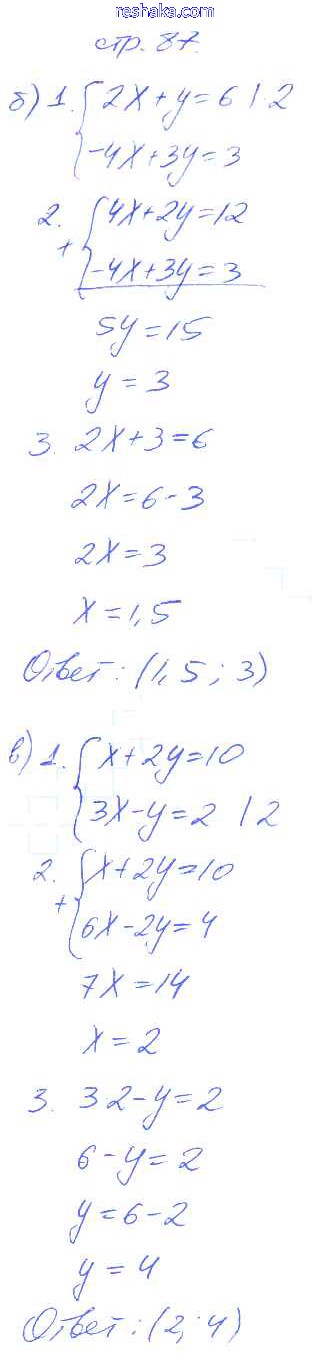 reshaka.com
стр. 87.
б) 1. {2x + y = 6 | 2
-4x + 3y = 3
2. {4x + 2y = 12
+ -4x + 3y = 3
5y = 15
y = 3
3. 2x + 3 = 6
2x = 6 - 3
2x = 3
x = 1,5
Ответ: (1,5; 3)
в) 1. {x + 2y = 10
3x - y = 2 | 2
2. {x + 2y = 10
+ 6x - 2y = 4
7x = 14
x = 2
3. 3 2 - y = 2
6 - y = 2
y = 6 - 2
y = 4
Ответ: (2; 4)